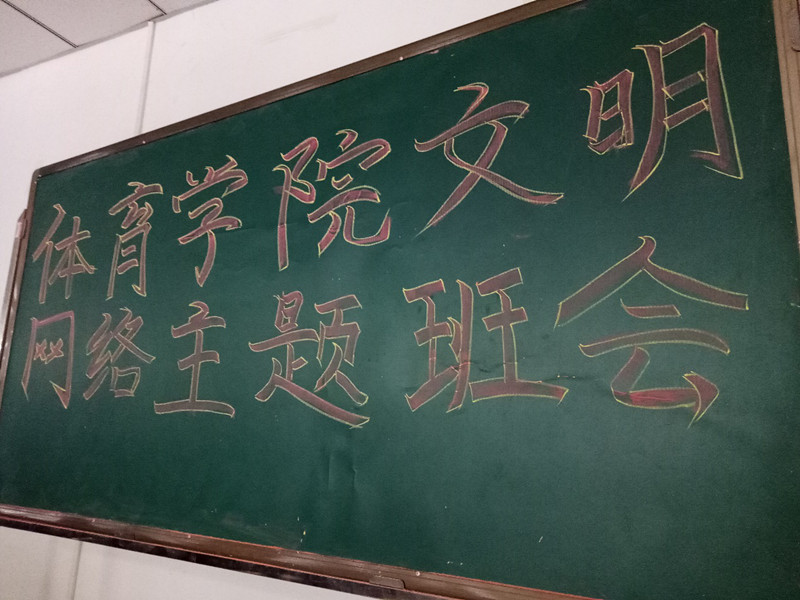 体育学院文明
网络主题班会